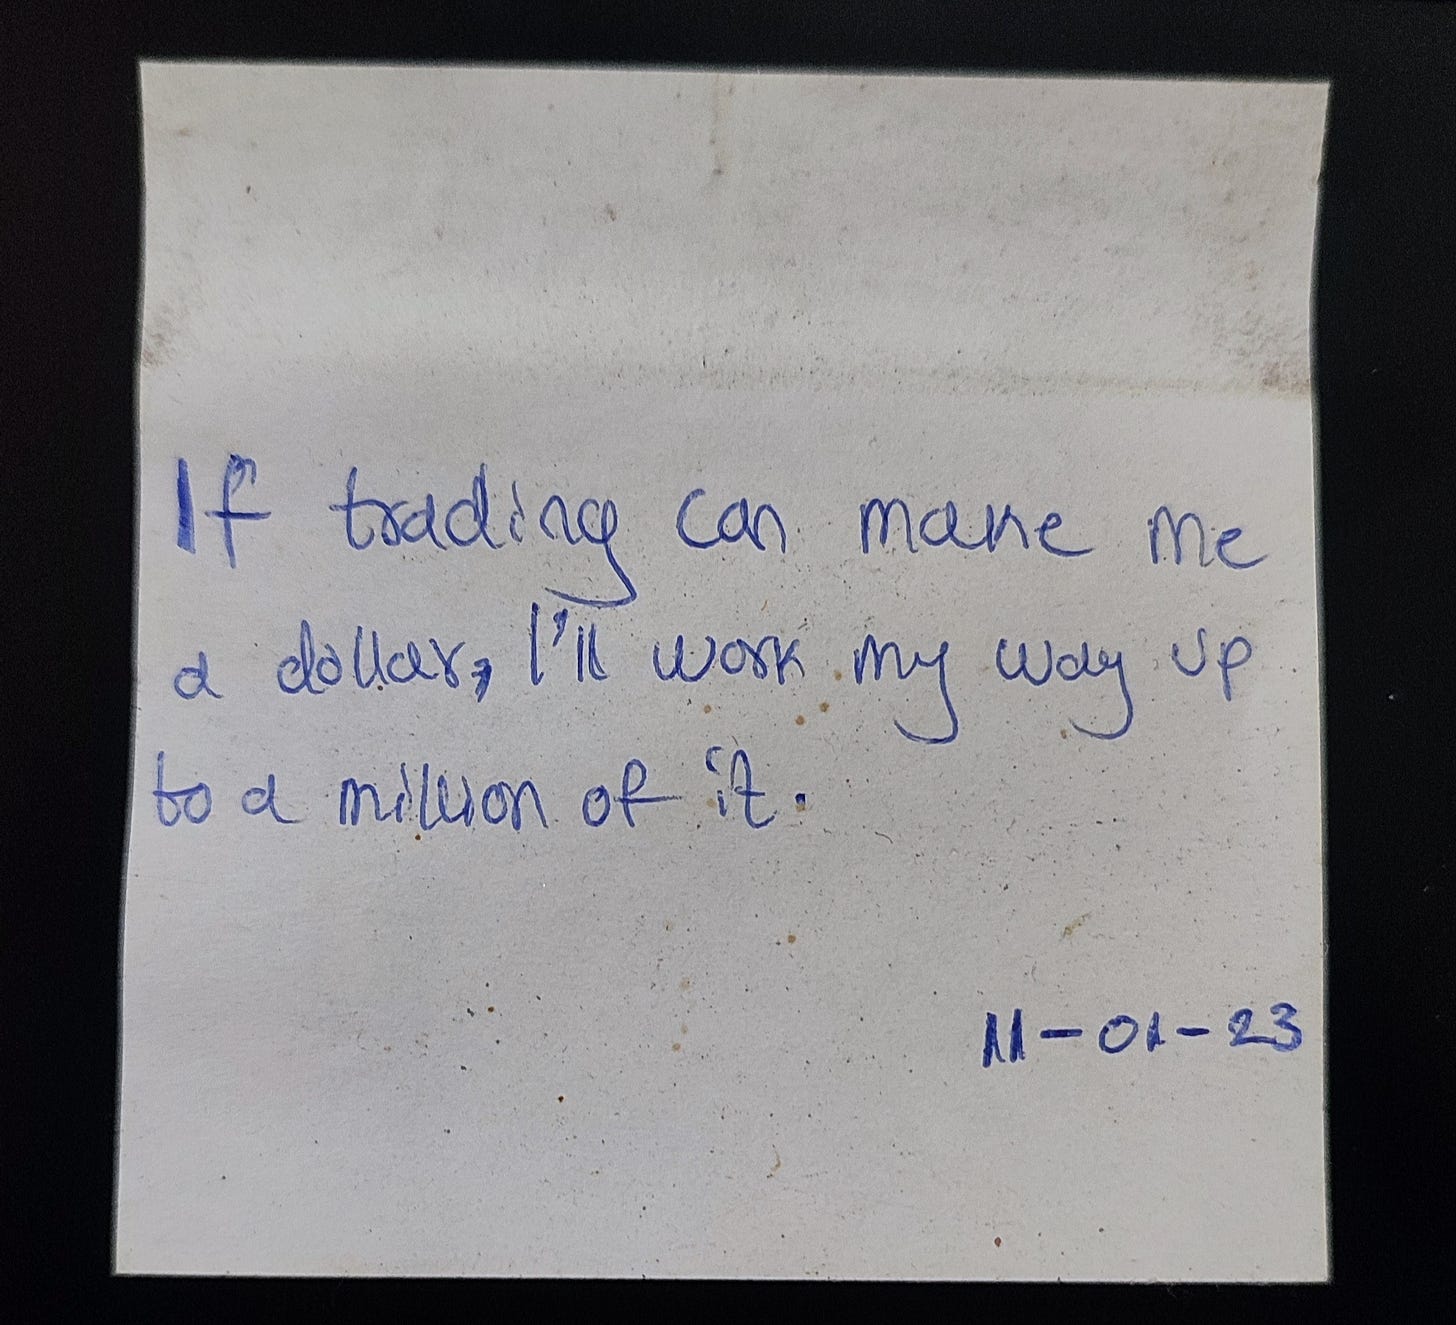 If trading can make me
a dollar, I'll work my way up
to a million of it.
11-01-23